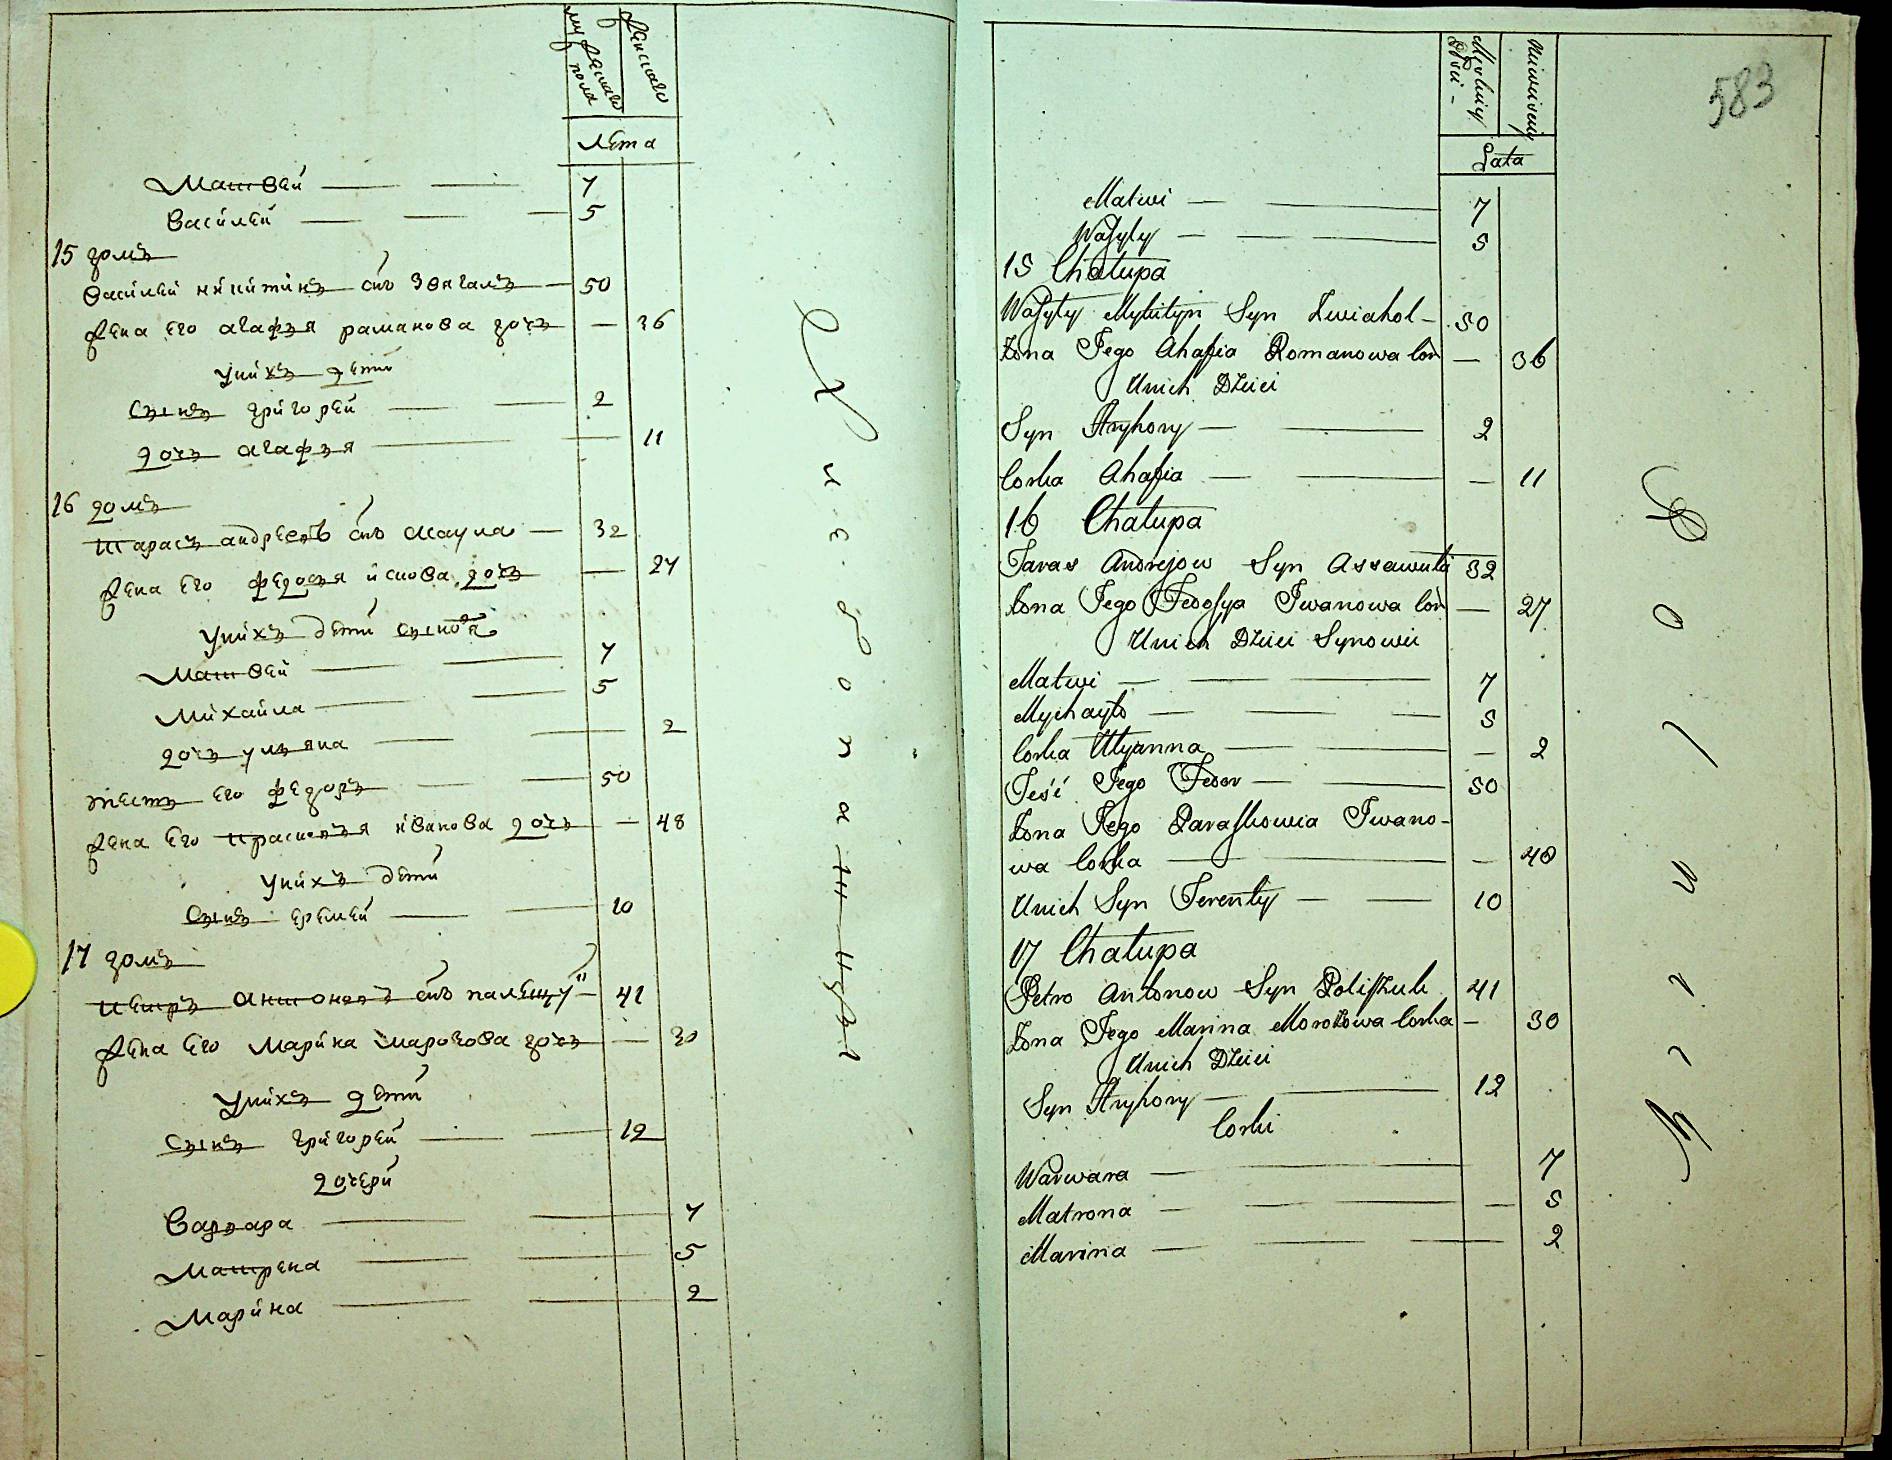 мужескаго пола
женскаго
Лета
Матвей 7
Василей 5
15 домъ
Василей никитинъ снъ Звягалъ 50
жена его агафья раманова дочь — 36
у нихъ дети
сынъ григорей 2
дочь агафья 11
16 домъ
Тарасъ андреевъ снъ асаула 32
жена его федосья иванова дочь — 27
у нихъ дети сыновя
Матвей 7
Михайла 5
дочь ульяна 2
тесть его федоръ 50
жена его прасковья иванова дочь — 48
у нихъ дети
сынъ еремей 10
17 домъ
Петръ антоновъ снъ палещу 41
жена его Марина марозова дочь — 30
у нихъ дети
сынъ григорей 12
дочери
Варвара 7
Матрена 5
Марина 2
583
Męskiey Płci
Niewieściey
Lata
Matwi 7
Wasyly 5
15 Chałupa
Wasyly Mykityn Syn Zwiahol 50
Żona Jego Ahafia Romanowa Cór — 36
U nich Dzieci
Syn Hryhory 2
Corka Ahafia — 11
16 Chałupa
Taras Andrejow Syn Assawuła 32
Żona Jego Fedosya Iwanowa Cór — 27
U nich Dzieci Synowie
Matwi 7
Mychayło 5
Corka Ulyanna — 2
Teść Jego Fedor 50
Żona Jego Paraskowia Iwano-
wa Corka — 48
U nich Syn Terenty 10
17 Chałupa
Petro Antonow Syn Poliszuk 41
Żona Jego Marina Morozowa Corka — 30
U nich Dzieci
Syn Hryhory 12
Corki
Warwara 7
Matrona — 5
Marina 2